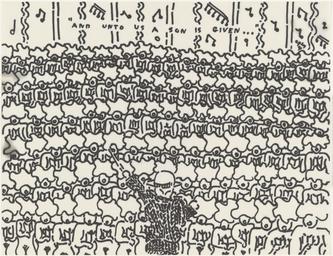 "AND UNTO   SON IS GIVEN..."